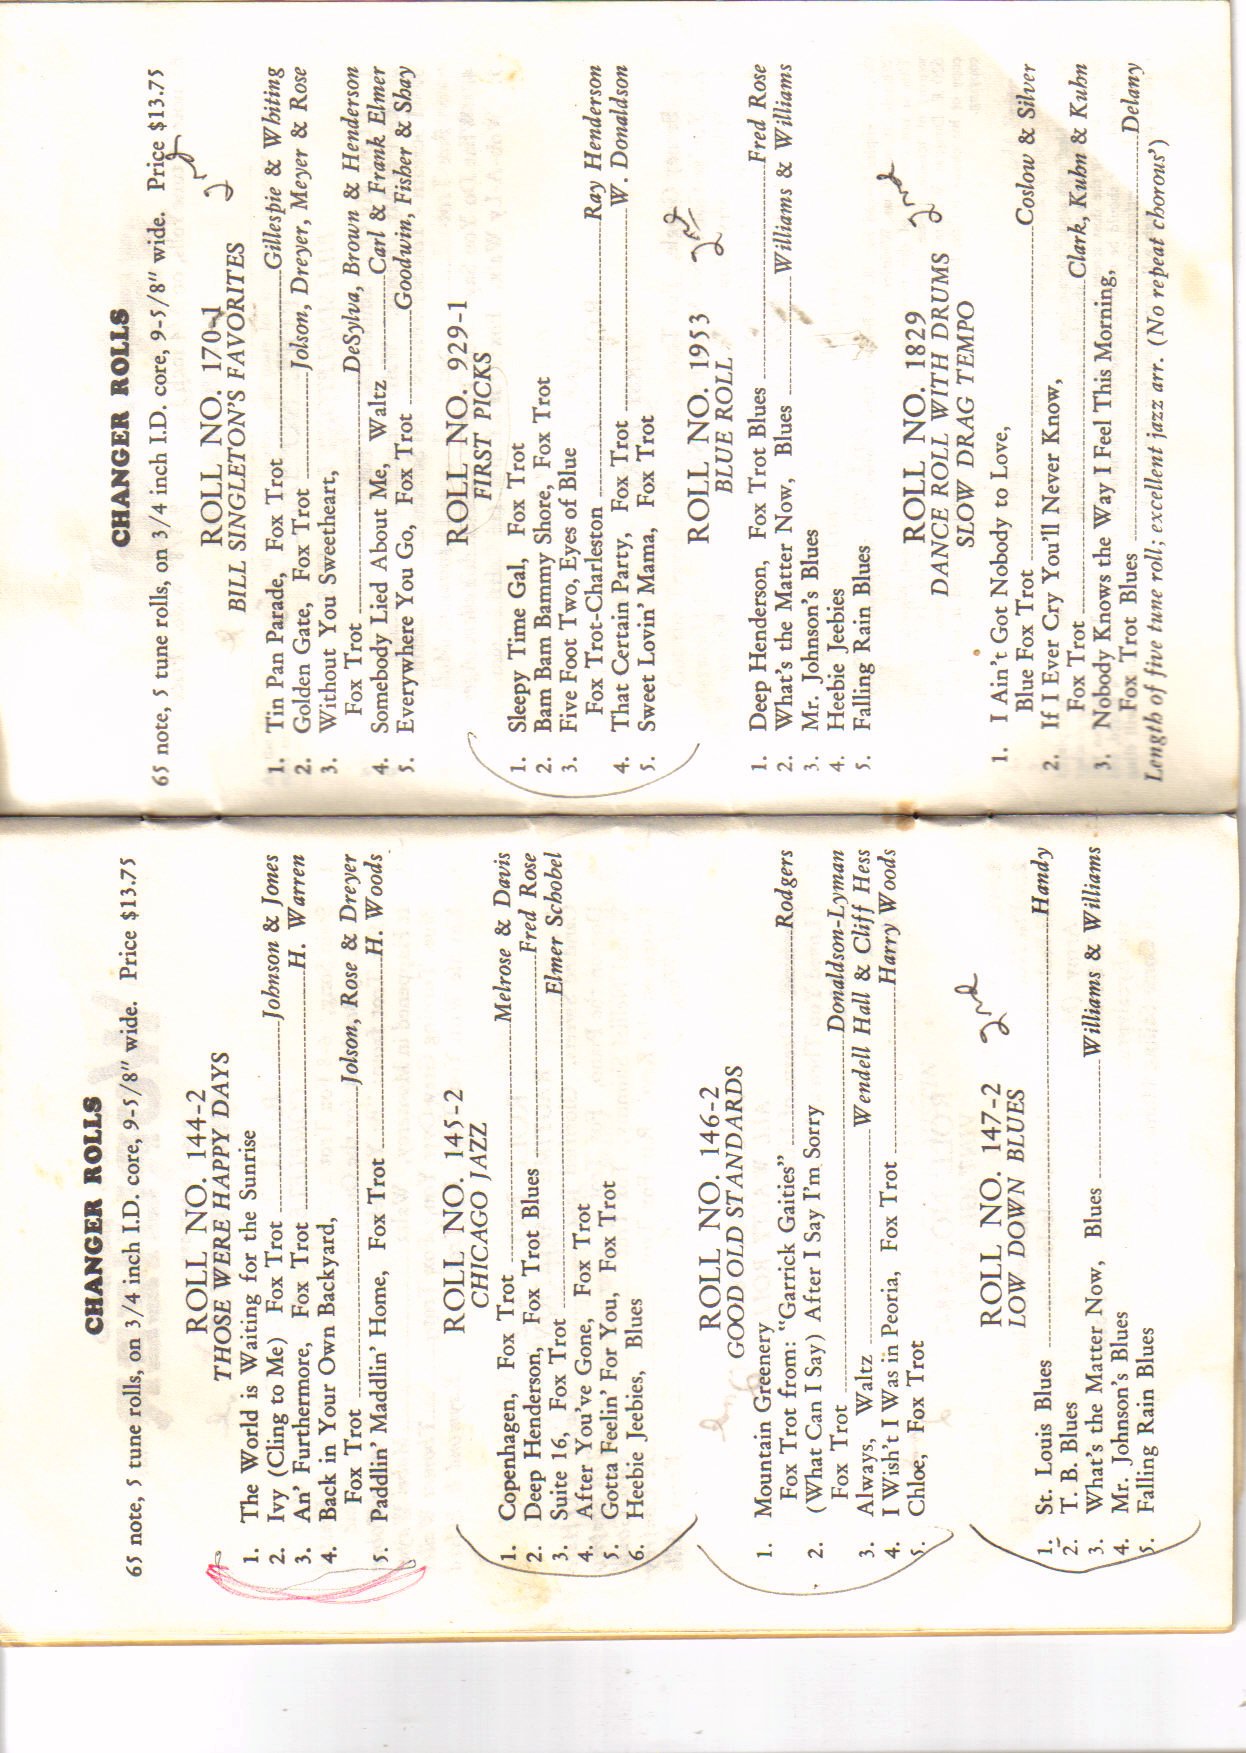 CHANGER ROLLS
65 note, 5 tune rolls, on 3/4 inch I.D. core, 9-5/8" wide. Price $13.75
ROLL NO. 144-2
THOSE WERE HAPPY DAYS
1. The World is Waiting for the Sunrise
2. Ivy (Cling to Me) Fox Trot Johnson & Jones
3. An' Furthermore, Fox Trot H. Warren
4. Back in Your Own Backyard,
Fox Trot Jolson, Rose & Dreyer
5. Paddlin' Maddlin' Home, Fox Trot H. Woods
ROLL NO. 145-2
CHICAGO JAZZ
1. Copenhagen, Fox Trot Melrose & Davis
2. Deep Henderson, Fox Trot Blues Fred Rose
3. Suite 16, Fox Trot Elmer Schobel
4. After You've Gone, Fox Trot
5. Gotta Feelin' For You, Fox Trot
6. Heebie Jeebies, Blues
ROLL NO. 146-2
GOOD OLD STANDARDS
1. Mountain Greenery
Fox Trot from: "Garrick Gaities" Rodgers
2. (What Can I Say) After I Say I'm Sorry
Fox Trot Donaldson-Lyman
3. Always, Waltz Wendell Hall & Cliff Hess
4. I Wish't I Was in Peoria, Fox Trot Harry Woods
5. Chloe, Fox Trot
ROLL NO. 147-2 2nd
LOW DOWN BLUES
1. St. Louis Blues Handy
2. T. B. Blues
3. What's the Matter Now, Blues Williams & Williams
4. Mr. Johnson's Blues
5. Falling Rain Blues
CHANGER ROLLS
65 note, 5 tune rolls, on 3/4 inch I.D. core, 9-5/8" wide. Price $13.75
ROLL NO. 170-1 2nd
BILL SINGLETON'S FAVORITES
1. Tin Pan Parade, Fox Trot Gillespie & Whiting
2. Golden Gate, Fox Trot Jolson, Dreyer, Meyer & Rose
3. Without You Sweetheart,
Fox Trot DeSylva, Brown & Henderson
4. Somebody Lied About Me, Waltz Carl & Frank Elmer
5. Everywhere You Go, Fox Trot Goodwin, Fisher & Shay
ROLL NO. 929-1
FIRST PICKS
1. Sleepy Time Gal, Fox Trot
2. Bam Bam Bammy Shore, Fox Trot
3. Five Foot Two, Eyes of Blue
Fox Trot-Charleston Ray Henderson
4. That Certain Party, Fox Trot W. Donaldson
5. Sweet Lovin' Mama, Fox Trot
ROLL NO. 1953 2nd
BLUE ROLL
1. Deep Henderson, Fox Trot Blues Fred Rose
2. What's the Matter Now, Blues Williams & Williams
3. Mr. Johnson's Blues
4. Heebie Jeebies
5. Falling Rain Blues
ROLL NO. 1829 2nd
DANCE ROLL WITH DRUMS
SLOW DRAG TEMPO
1. I Ain't Got Nobody to Love,
Blue Fox Trot Coslow & Silver
2. If I Ever Cry You'll Never Know,
Fox Trot Clark, Kuhn & Kuhn
3. Nobody Knows the Way I Feel This Morning,
Fox Trot Blues Delany
Length of five tune roll; excellent jazz arr. (No repeat chorous')